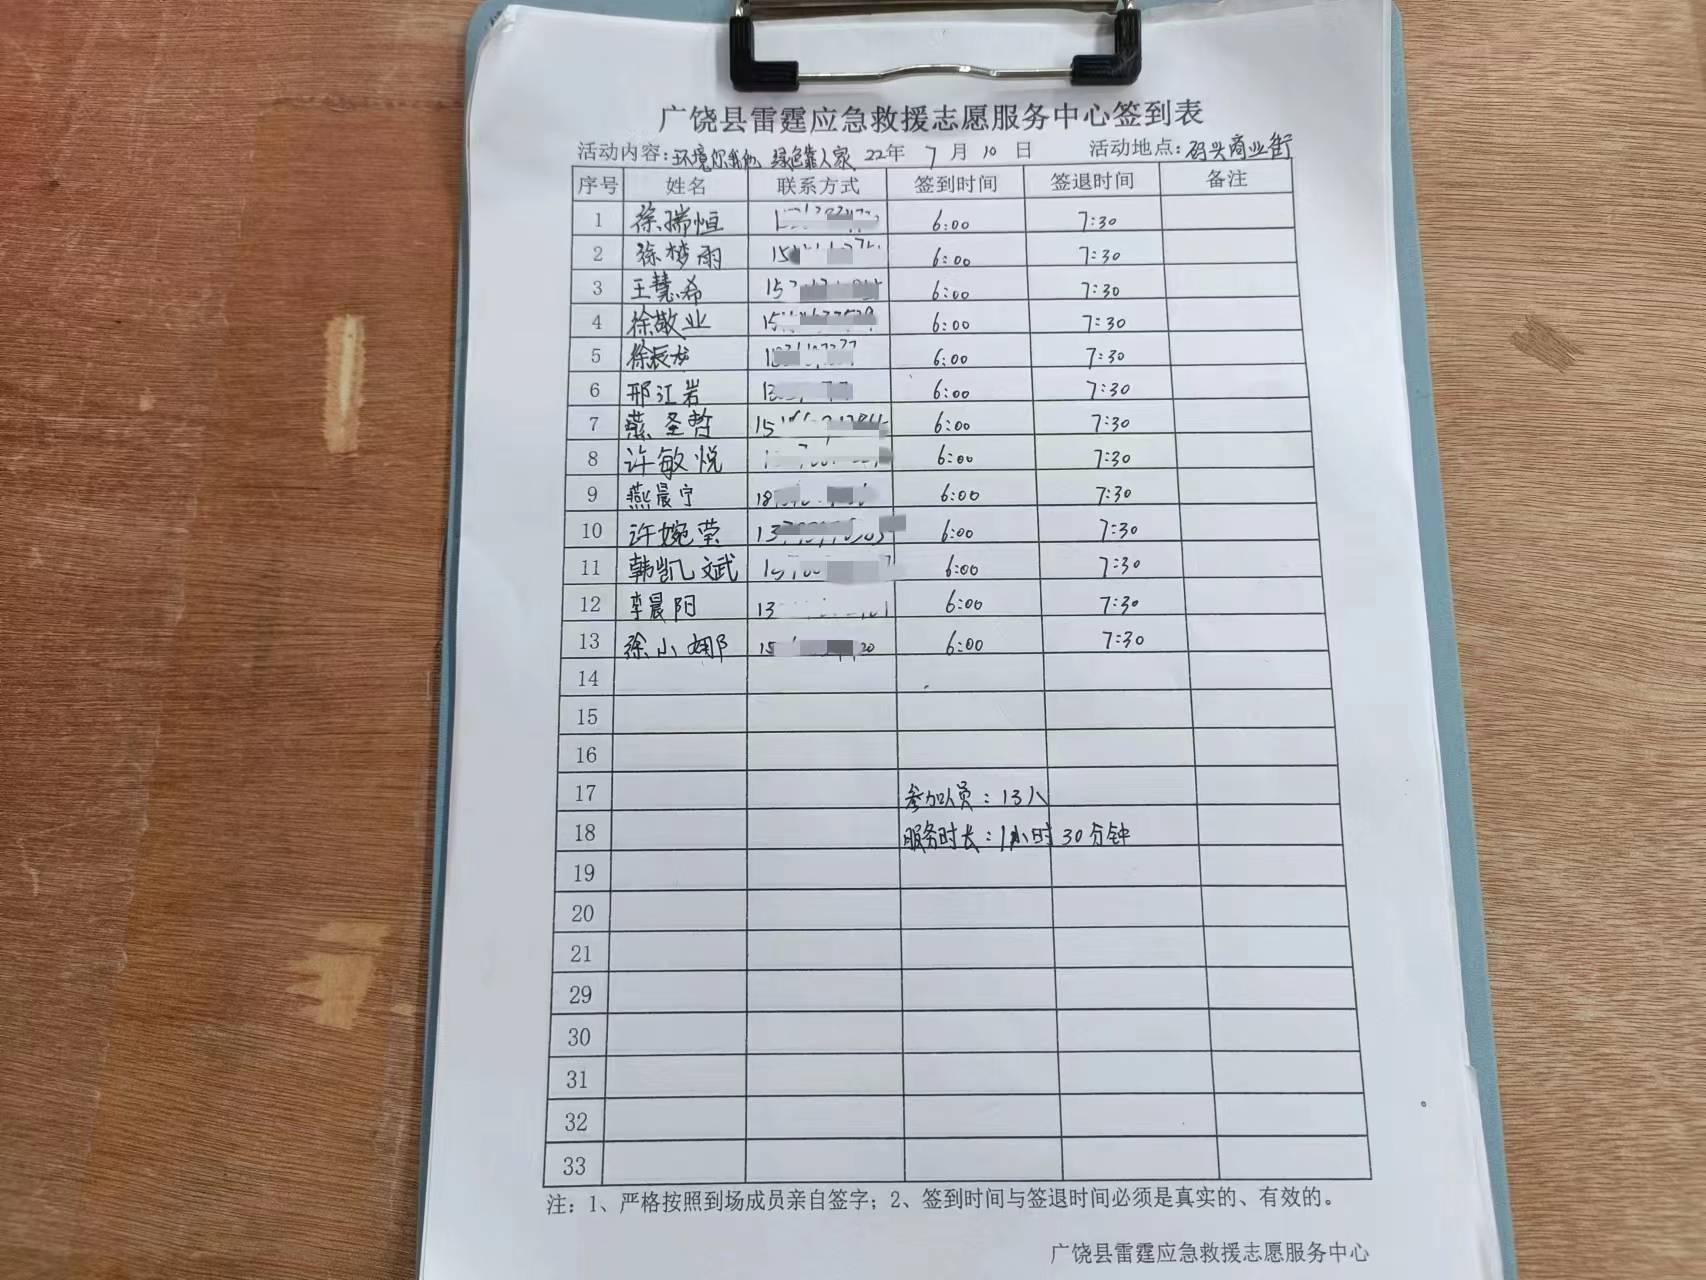 广饶县雷霆应急救援志愿服务中心签到表
活动内容:环境你我他 绿色靠大家 22年 7月10日 活动地点:码头商业街
序号 姓名 联系方式 签到时间 签退时间 备注
1 徐瑞恒 6:00 7:30
2 徐梦雨 15 6:00 7:30
3 王慧希 15 6:00 7:30
4 徐敬业 15 6:00 7:30
5 徐辰龙 6:00 7:30
6 邢江岩 13 6:00 7:30
7 燕圣哲 15 6:00 7:30
8 许敏悦 6:00 7:30
9 燕晨宁 18 6:00 7:30
10 许婉莹 13 6:00 7:30
11 韩凯斌 6:00 7:30
12 李晨阳 13 6:00 7:30
13 徐小娜 15 20 6:00 7:30
14
15
16
17 参加队员:13人
18 服务时长:1小时30分钟
19
20
21
29
30
31
32
33
注:1、严格按照到场成员亲自签字;2、签到时间与签退时间必须是真实的、有效的。
广饶县雷霆应急救援志愿服务中心